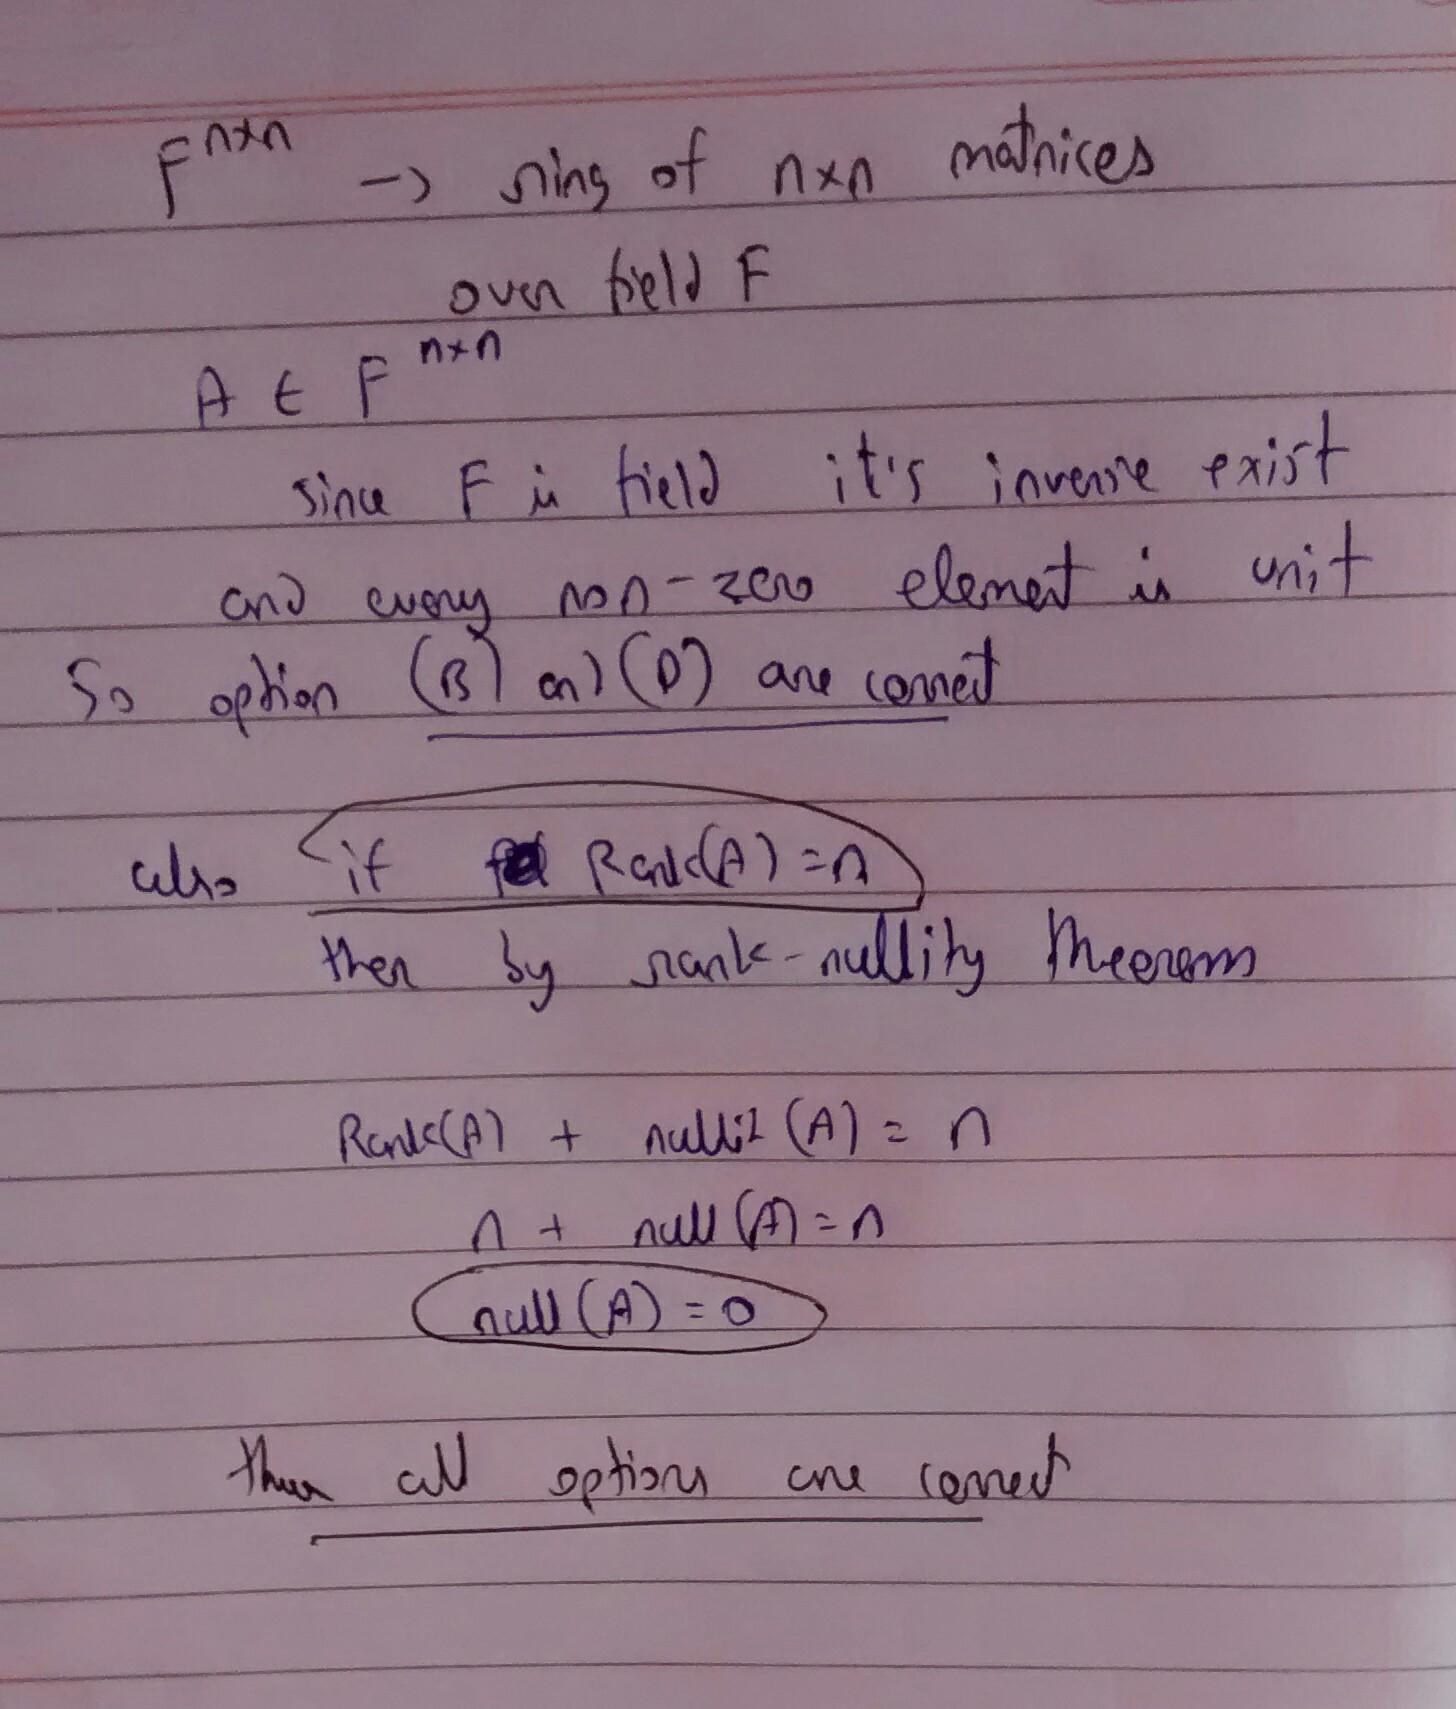 F^{n×n} → ring of n×n matrices
over field F
A ∈ F^{n×n}
since F is field it's inverse exist
and every non-zero element is unit
So option (B) and (D) are correct
also if Rank(A) = n
then by rank-nullity theorem
Rank(A) + nullit (A) = n
n + null (A) = n
null (A) = 0
then all options are correct